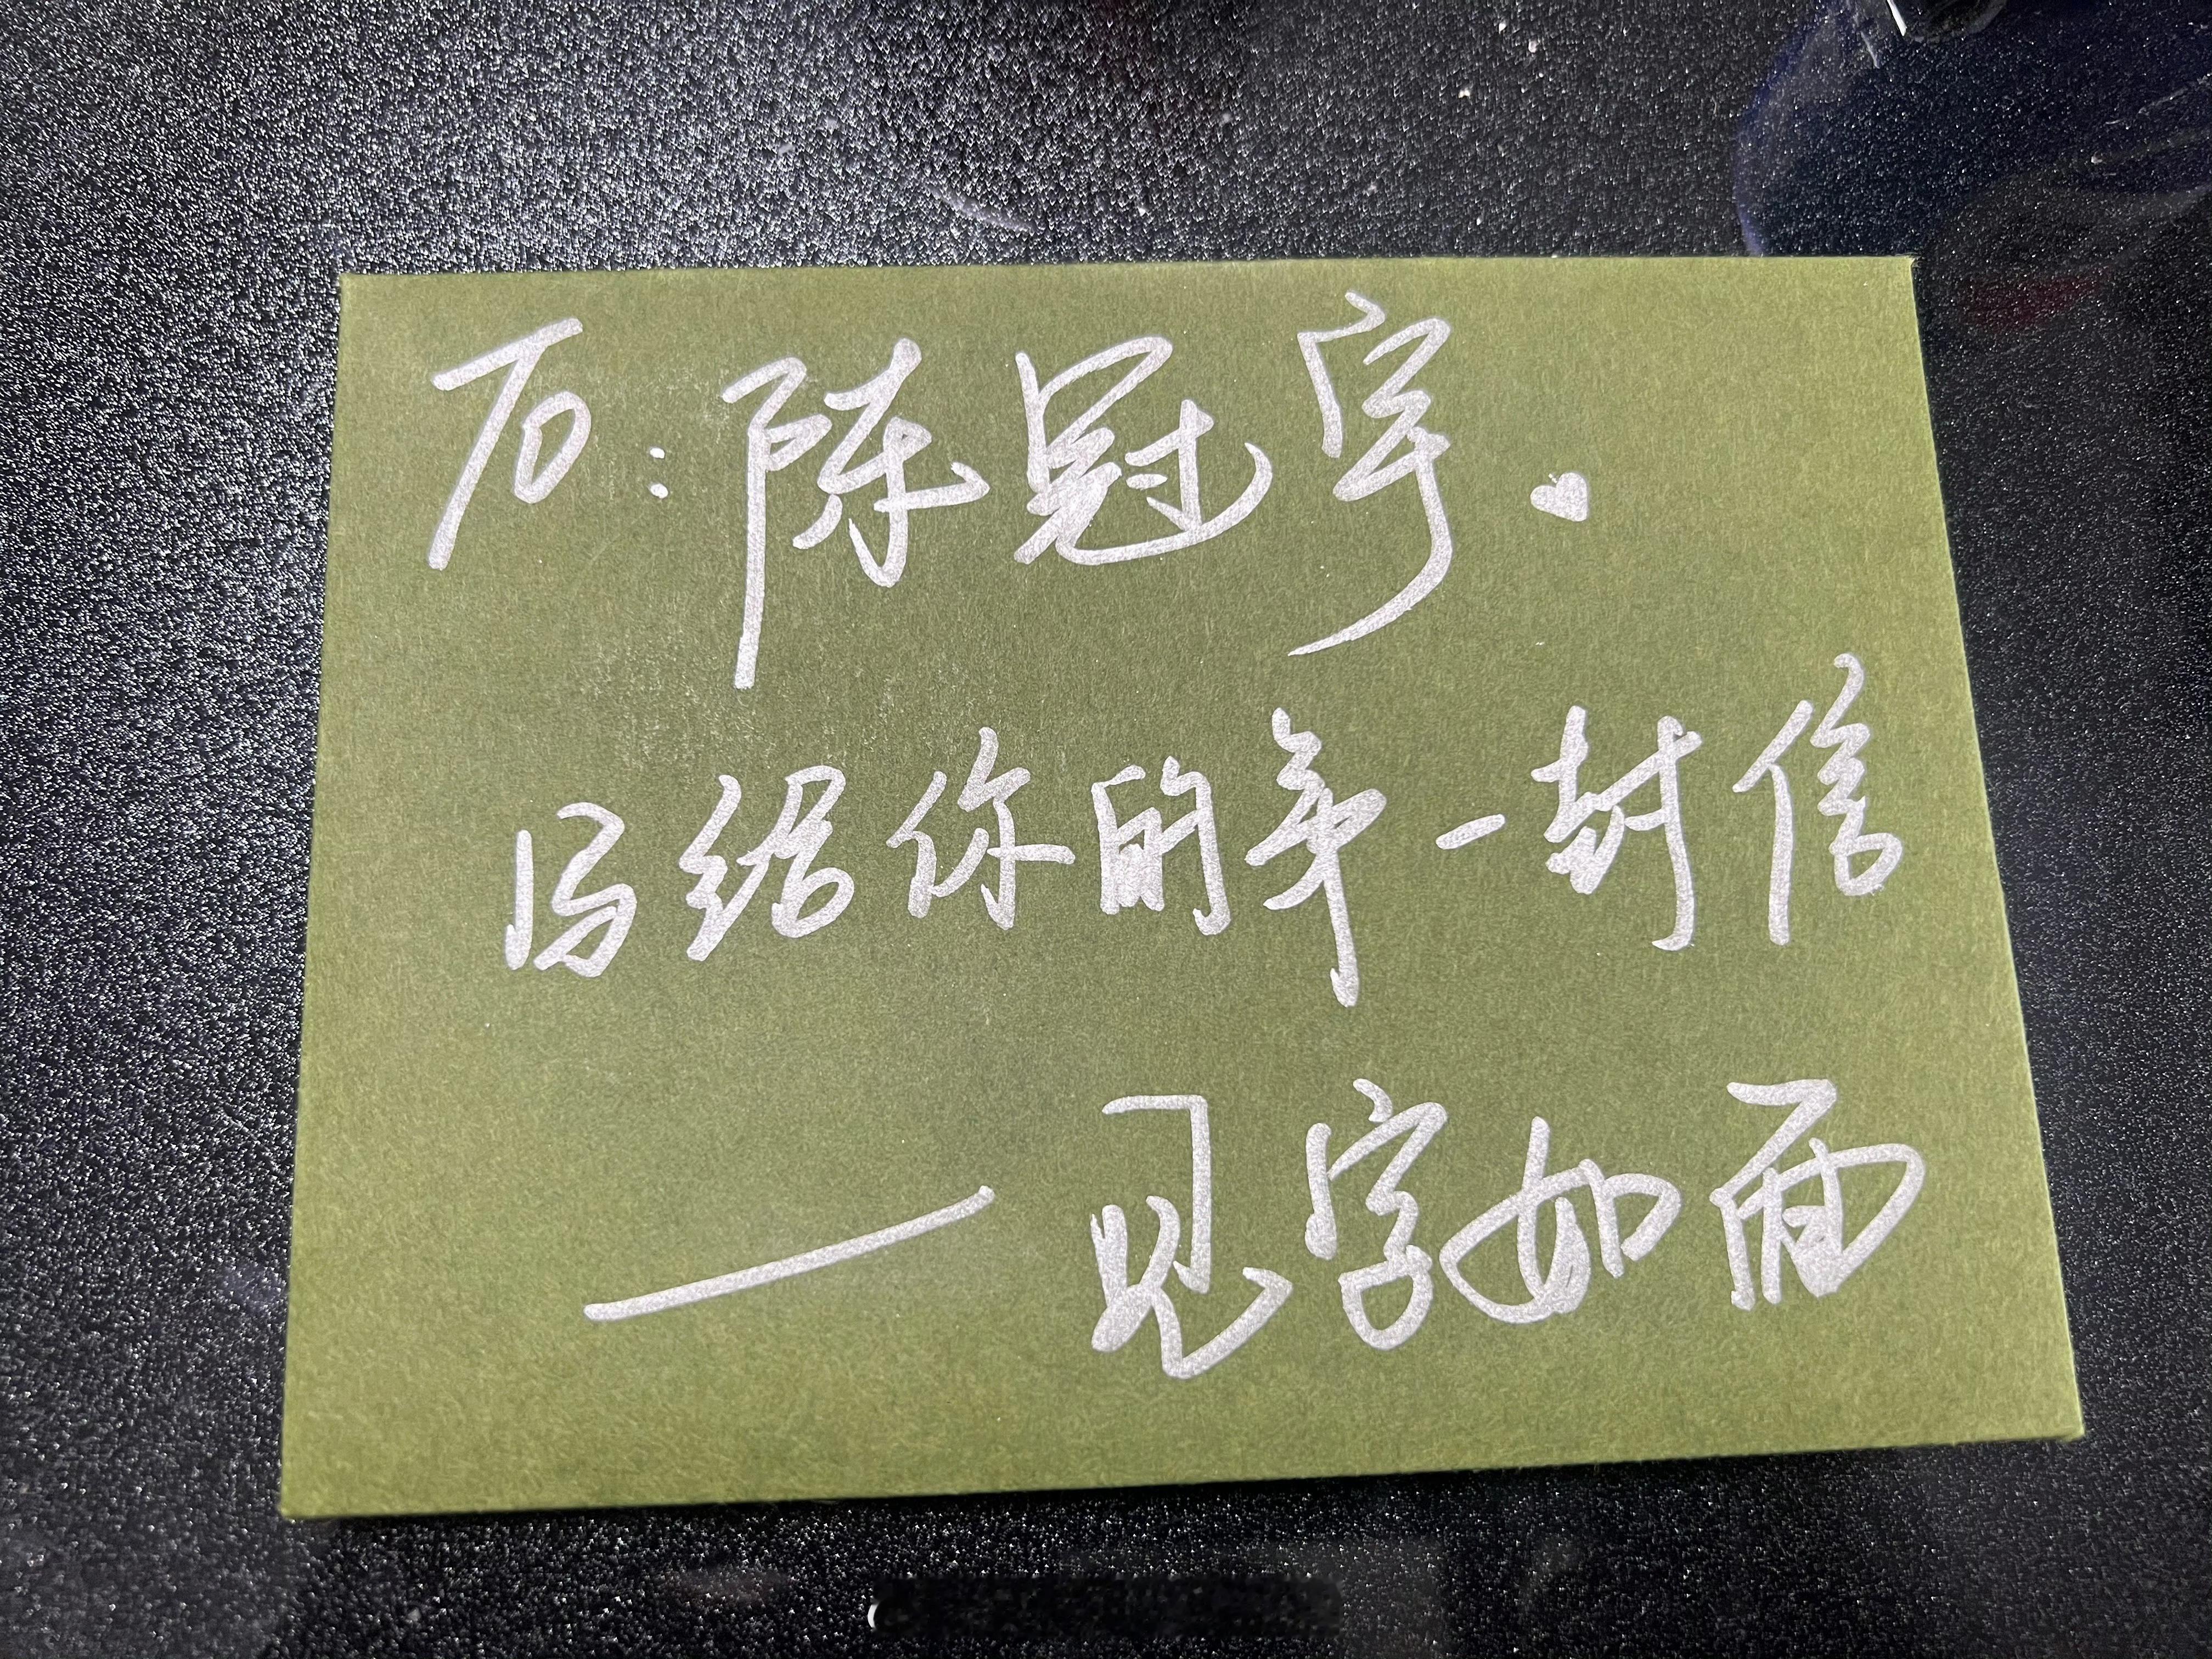 To:陈冠宇.♥
写给你的第一封信
—见字如面